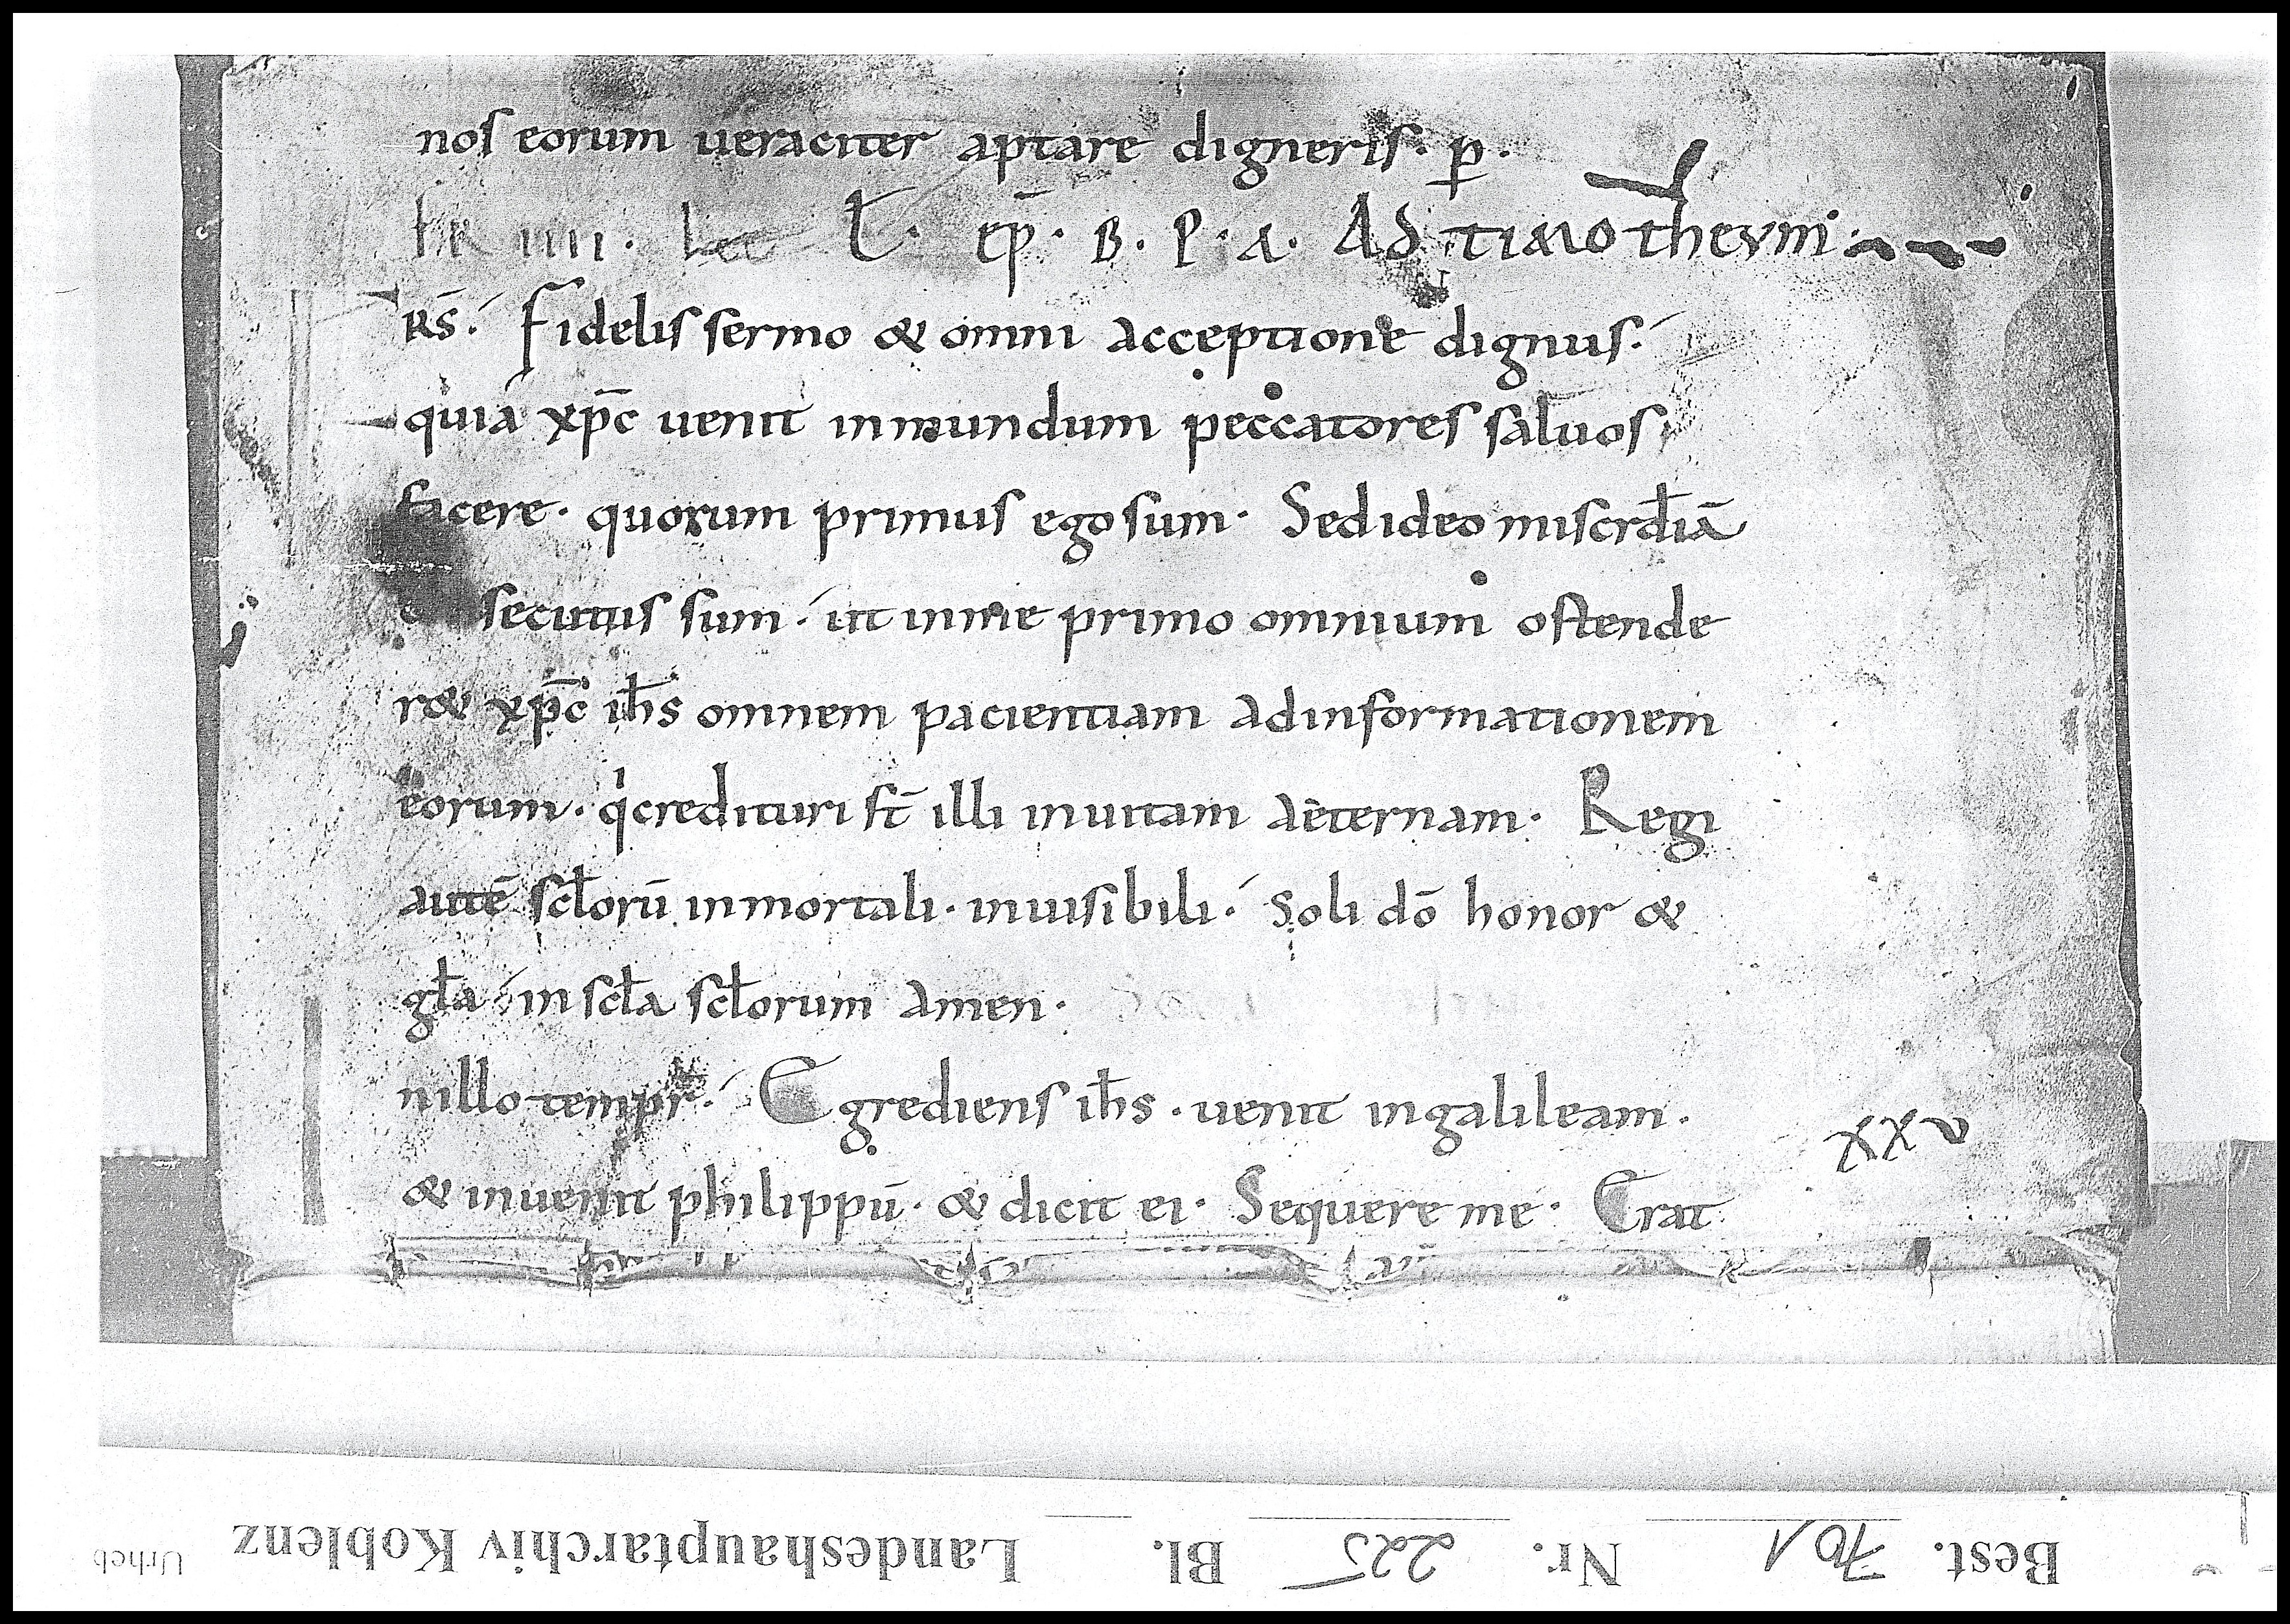 nos eorum ueraciter aptare digneris. p̲.
FR IIII. L. ep̄. B. P. A. Ad timotheum.
RS̄. Fidelis sermo & omni acceptione dignus.
quia xp̄c uenit inmundum peccatores saluos
facere. quorum primus ego sum. Sed ideo miscrd̄iā
secutus sum. ut inme primo omnium ostende
r& xp̄c ih̄s omnem pacientiam adinformationem
eorum. qͥcredituri st̄ illi inuitam aeternam. Regi
autē scl̄orū inmortali. inuisibili. soli dō honor &
gl̄a in scl̄a scl̄orum amen.
nillo tempr̄. Egrediens ih̄s. uenit ingalileam.
xxv
& inuenit philippū. & dicit ei. Sequere me. Erat
Best. 701 Nr. 225 Bl. Landeshauptarchiv Koblenz Urheb